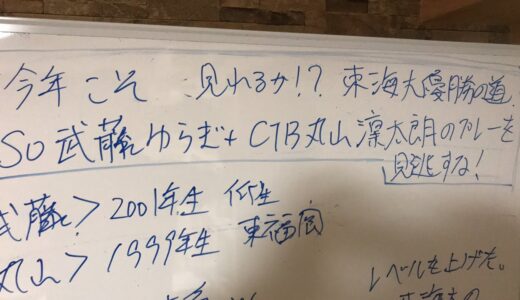 今年こそ 見れるか!? 東海大優勝の道
SO武藤ゆらぎ+CTB丸山凜太朗のプレーを
見逃すな!
武藤> 2001年生
丸山> 1999年生 東福岡
レベルを上げも。